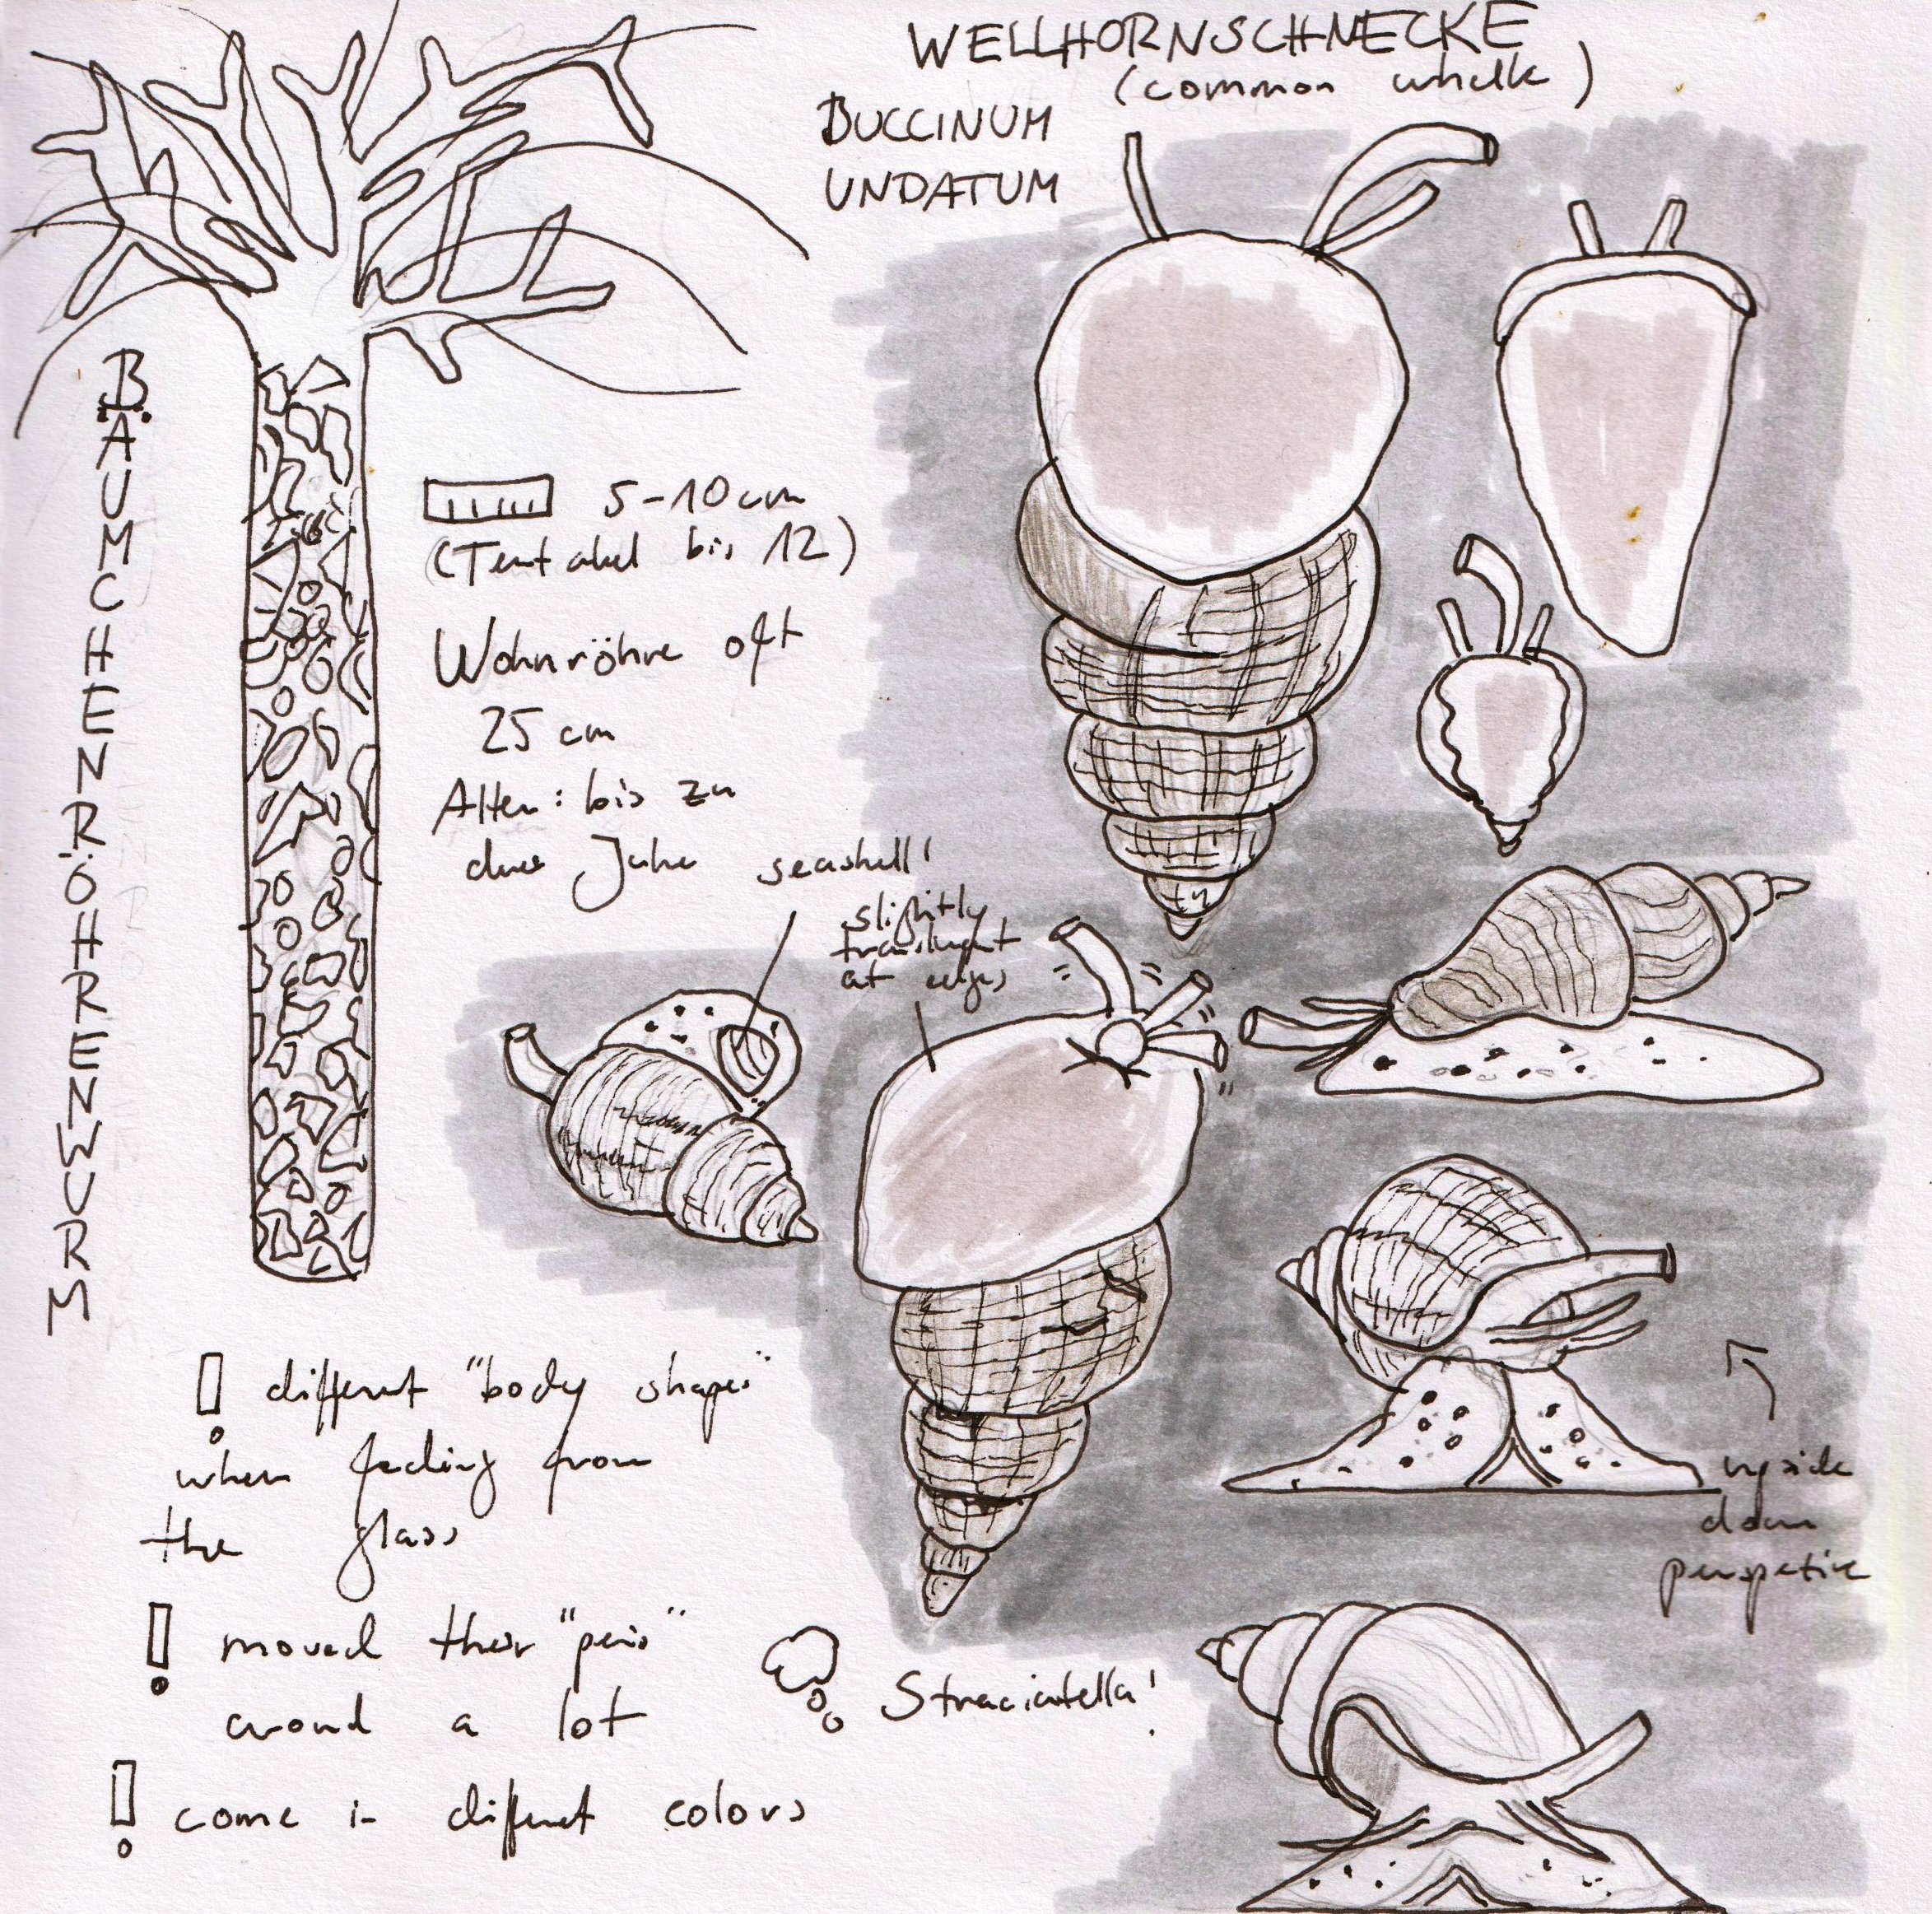 WELLHORNSCHNECKE
(common whelk)
BUCCINUM
UNDATUM
BÄUMCHENRÖHRENWURM
5-10 cm
(Tentakel bis 12)
Wohnröhre oft
25 cm
Alter: bis zu
drei Jahre
seashell!
slightly
translucent
at edges
! different "body shapes"
when feeding from
the glass
! moved their "penis"
around a lot
Straciatella!
! come in different colors
upside
down
perspetive